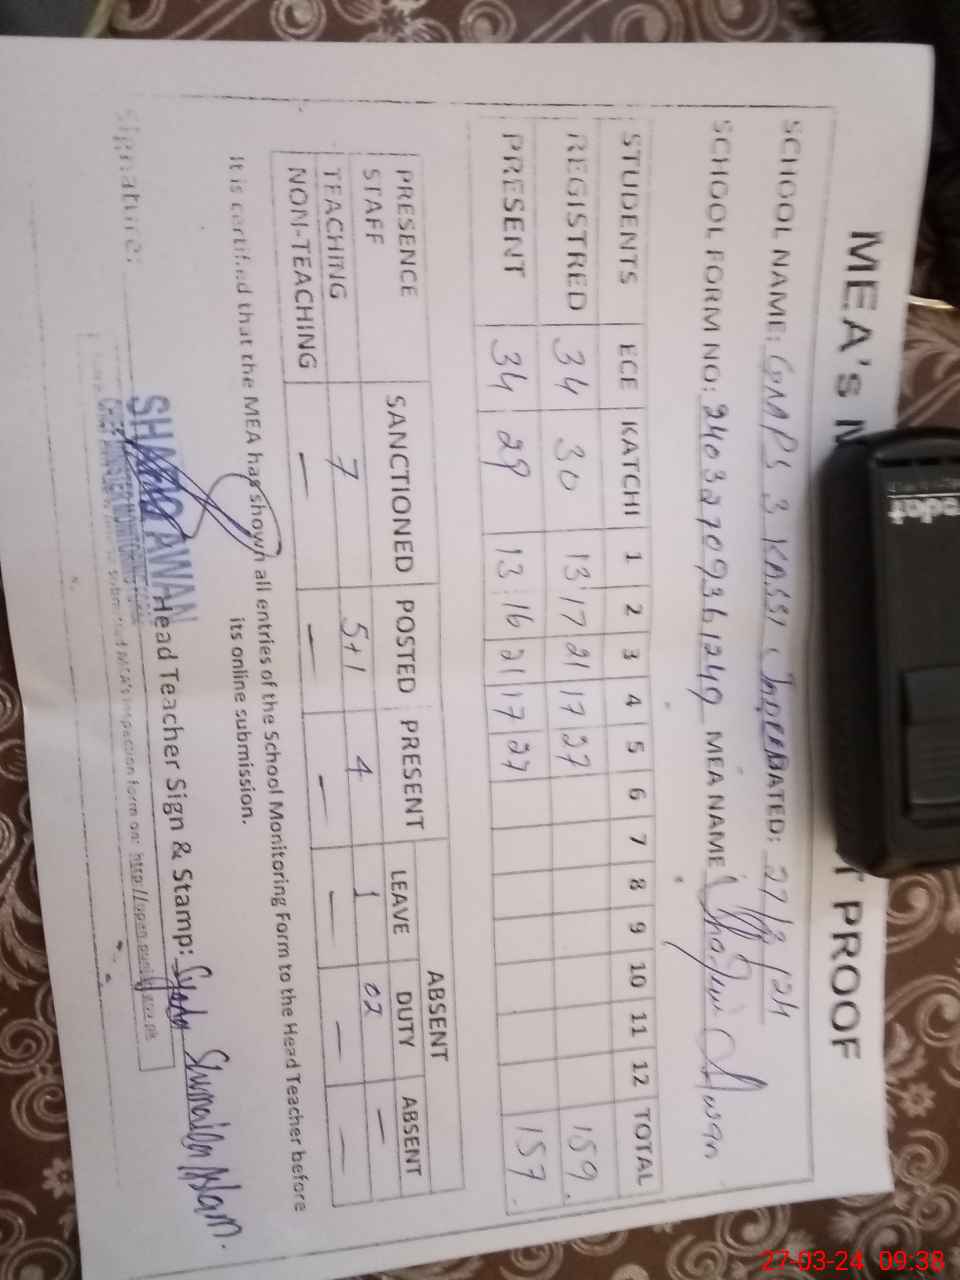 MEA's M T PROOF
SCHOOL NAME: GMPS 3 KASSI, DATED: 27/3/24
SCHOOL FORM NO: 24032709361249 MEA NAME Awan
STUDENTS ECE KATCHI 1 2 3 4 5 6 7 8 9 10 11 12 TOTAL
REGISTRED 34 30 13 17 21 17 27 159.
PRESENT 34 29 13 16 21 17 27 157.
PRESENCE SANCTIONED POSTED PRESENT ABSENT
STAFF LEAVE DUTY ABSENT
TEACHING 7 5+1 4 1 02 —
NOM-TEACHING — — — — — —
It is certified that the MEA has shown all entries of the School Monitoring Form to the Head Teacher before
its online submission.
Signature: Head Teacher Sign & Stamp: Syeda Sumaila Aslam.
AWAN
inspection form on: http://open.punjab.gov.pk
27-03-24 09:38